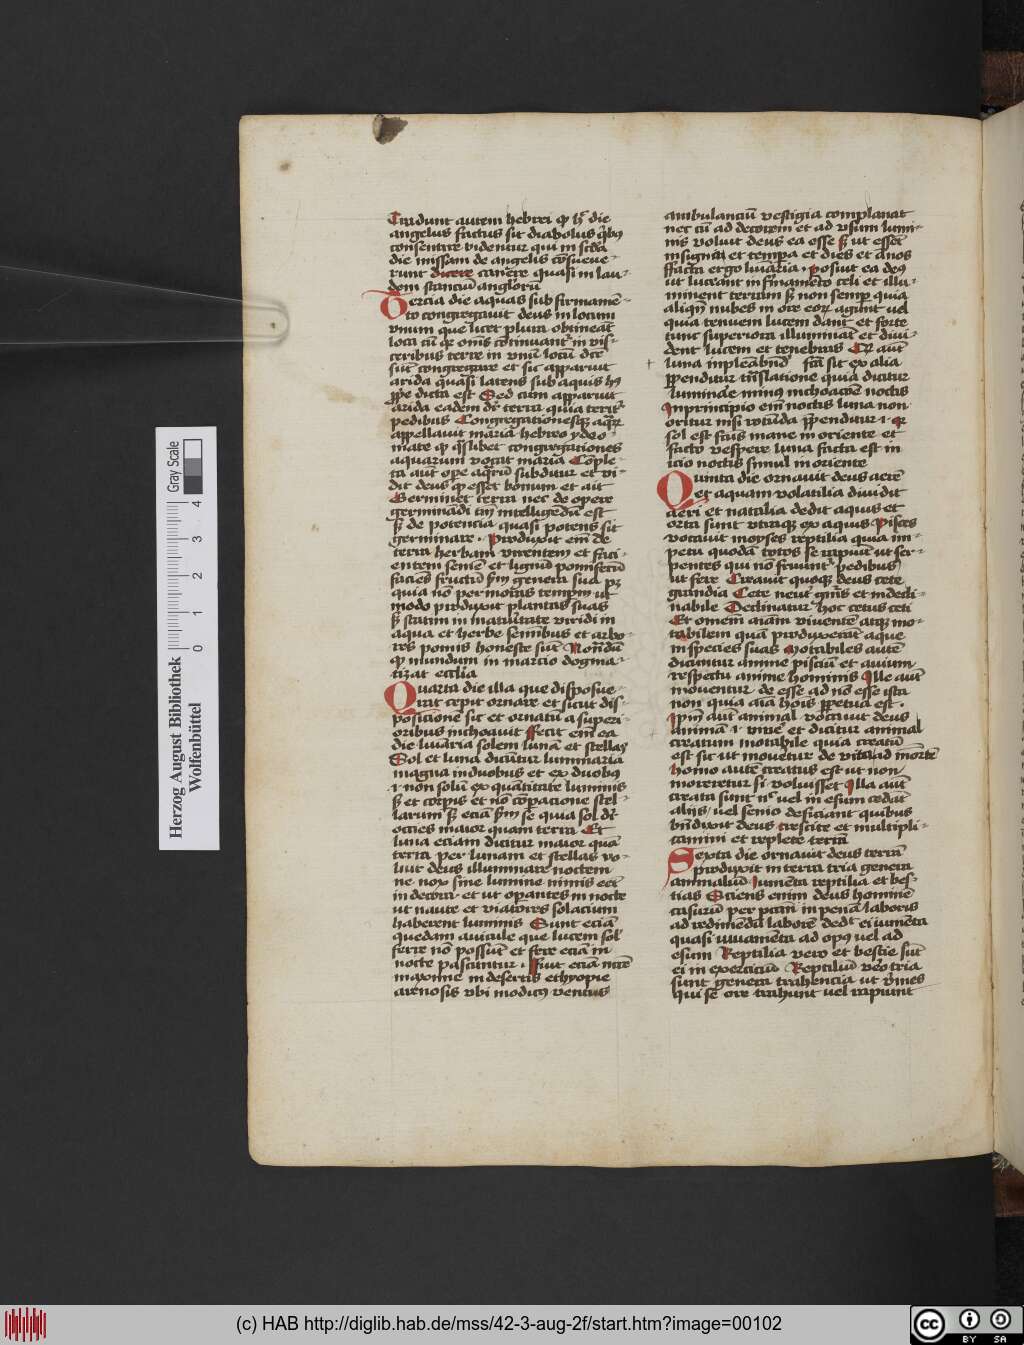 Tradunt autem hebrei qͥ hͨ die
angelus factus sit diabolus qͥbꝯ
consentire videntur qui in scd̄a
die missam de angelis cōsueue-
runt dicere canere quasi in lau-
dem stanciū angl̓orū
Tercia die aquas sub firmamē-
to congregauit deus in locum
vnum que licet plura obtineāt
loca tn̄ qr̄ om̄s cōtinuant̉ in vis-
ceribus terre in vnū locū dr̄e
sūt congregate et sic apparuit
arida quasi latens sub aquis
dicta est Sed cum apparuit
arida eadem dr̄ terra quia terit̉
pedibus Congregationesqꝫ aqr̄
appellauit maria hebreo ydeo-
mate qͥ qͣslibet congregationes
aquarum vocat maria Cōple-
ta aūt ope aqr̄ū subditur et vi-
dit deus qͥ esset bonum et ait
Germinet terra nec de opere
germinādi tm̄ intelligēdā est
sꝫ de potencia quasi potens sit
germinare . Produxit em̄ de
terra herbam virentem et faci-
entem semē et lignū pomiferū
faciēs fructū genera sua
quia nō per moras tempm̄ ut
modo produxit plantas suas
sꝫ statim in maturitate viridi in
aqua et herbe seminibus et arbo-
res pomis honeste sūt Notādū
qͥ mundum in marcio dogma-
tizat ecclīa
Quarta die illa que disposue-
rat cepit ornare et sicut dis-
posicione sic et ornatū a superi-
oribus inchoauit Fecit em̄ ea
die luīaria solem lunā et stellas
Sol et luna dicūtur luminaria
magna in duobus et ex duobꝯ
⁊ non solū ex quātitate luminis
sꝫ et corpis et nō cōpacione stel-
larum sꝫ eciā sm̄ se quia sol dr̄
octies maior quam terra Et
luna eciam dicitur maior quā
terra per lunam et stellas vo-
luit deus illuminare noctem
ne nox sine lumine nimis eēt
indecora et ut operantes in nocte
ut naute et viatores solacium
haberent luminis Sunt eciā
quedam auicule que lucem sol̓
ferre nō possūt et fere eciā in
nocte pascuntur . Fiut eciā
maxime in desertis ethyopie
arenosis vbi modicꝯ ventus
ambulanciū vestigia complanat
nec tn̄ ad decorem et ad vsum lumi-
nis voluit deus ea esse sꝫ ut essēt
in signa et tempa et dies et ānos
ffacta ergo luīaria . posuit ea deꝯ
ut luceant in firmamēto celi et illu-
minent terram sꝫ non semper quia
aliqn̄ nubes in ore eor̄ agunt uel
quia tenuem lucem dant et forte
tunc superiora illuminat et diui-
dent lucem et tenebras Qr̄ aūt
luna in plenilunio fc̄a sit ex alia
perpenditur trāslatione quia dicitur
Luminare minꝯ inchoacōe noctis
In principio em̄ noctis luna non
oritur nisi rotūda ppenditur ⁊ qr̄
sol est fcūs mane in oriente et
facto vespere luna facta est in
inicio noctis simul in oriente
Quinta die ornauit deus aerē
et aquam volatilia diuidit
aeri et natalia dedit aquis et
orta sunt vtraqꝫ ex aquis Pisces
vocauit moyses reptilia quia im-
petu quodā totos se rapiūt ut ser-
pentes qui nō feruntur pedibus
ut fere Creauit quoqꝫ deus cete
grandia Cete neut̓ gn̄is et indecli-
nabile Declinatur hoc cetus ceti
Et omem aīam viuentē atqꝫ mo-
tabilem quā produxerāt aque
in species suas Motabiles autē
dicuntur anime pisciū et auium
respectu anime hominis Ille aūt
mouentur de esse ad nō esse ista
non quia aīa hoīs ppetua est .
Ipm̄ aūt animal vocauit deus
animā ⁊ viuē et dicitur animal
creatum motabile quia creatū
est sic ut mouetur de vita ad mortē
Homo autē creatus est ut non
moreretur si voluisset Illa aūt
creata sunt ut uel in esum cedāt
aliis / uel senio deficiant quibus
bn̄dixit deus crescite et multipli-
camini et replete terrā
Sexta die ornauit deus terrā
produxit in terra tria genera
animaliū Iumēta reptilia et bes-
tias Sciens enim deus hominē
casurū per pcc̄m in penā laboris
ad redimēdū laborē dedᵗ ei iumēta
quasi iuuamēta ad opꝯ uel ad
esum Reptilia vero et bestie sūt
ei in exerciciū Reptiliū vero tria
sunt genera trahencia ut v̄mes
qui se ore trahunt uel rapiunt
Herzog August Bibliothek
Wolfenbüttel
Gray Scale
0 1 2 3 4
(c) HAB http://diglib.hab.de/mss/42-3-aug-2f/start.htm?image=00102
cc BY SA